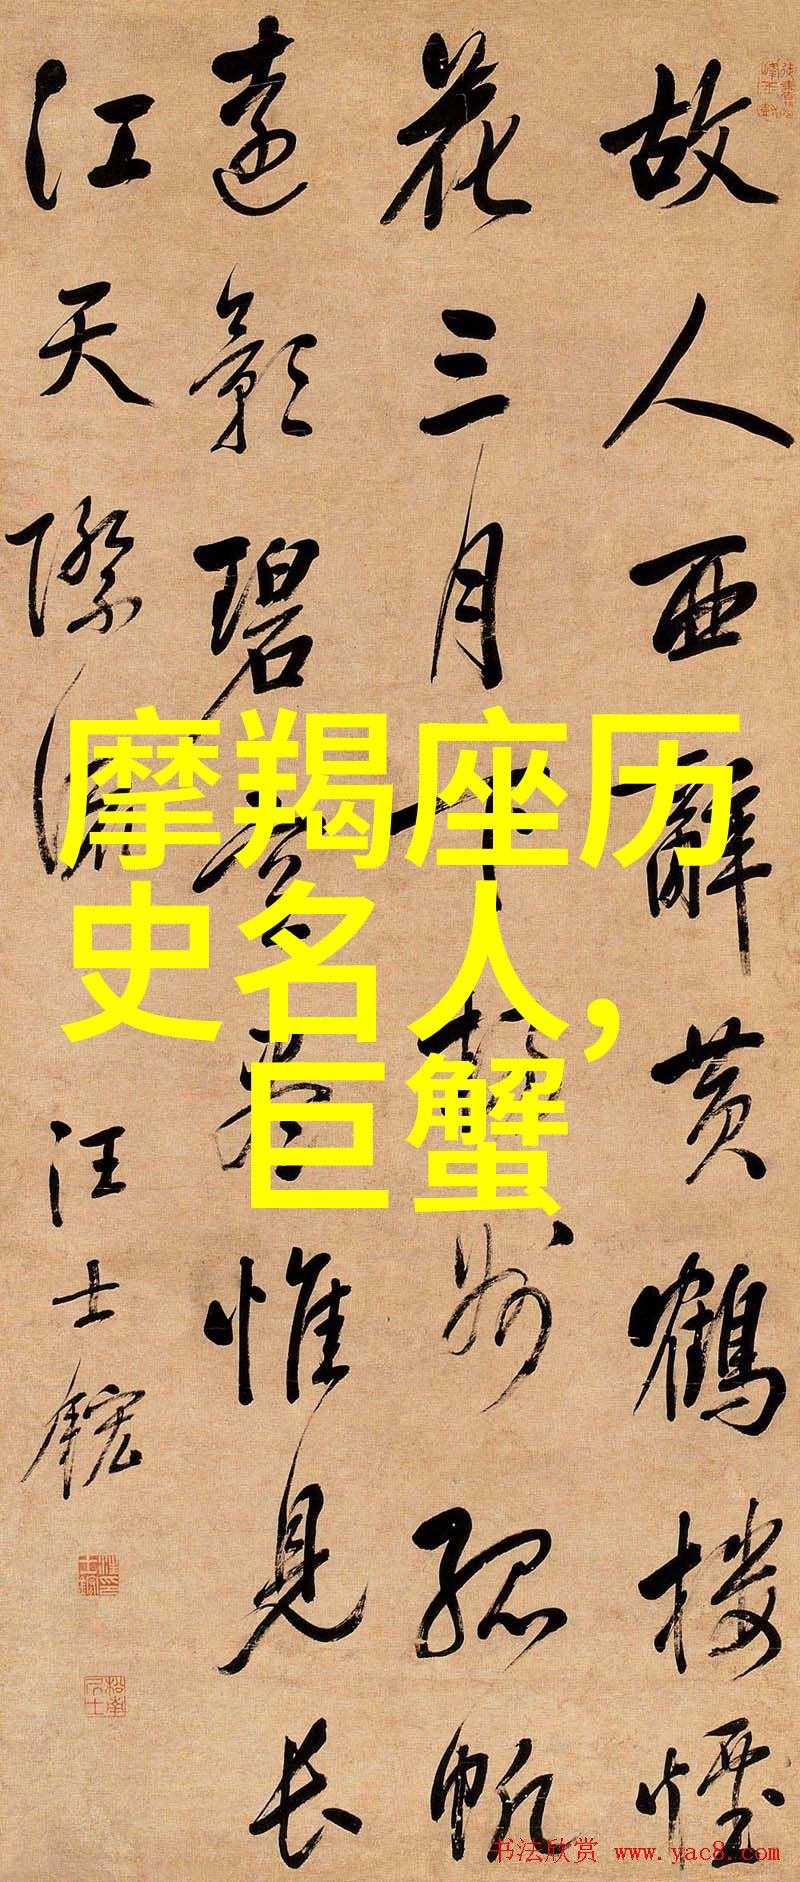 故人西辭黄鶴楼煙
花三月下揚州孤帆
遠影碧空盡惟見長
江天際流
汪士鋐
摩羯座历
史名人,
巨蟹
书法欣赏 www.yac8.com